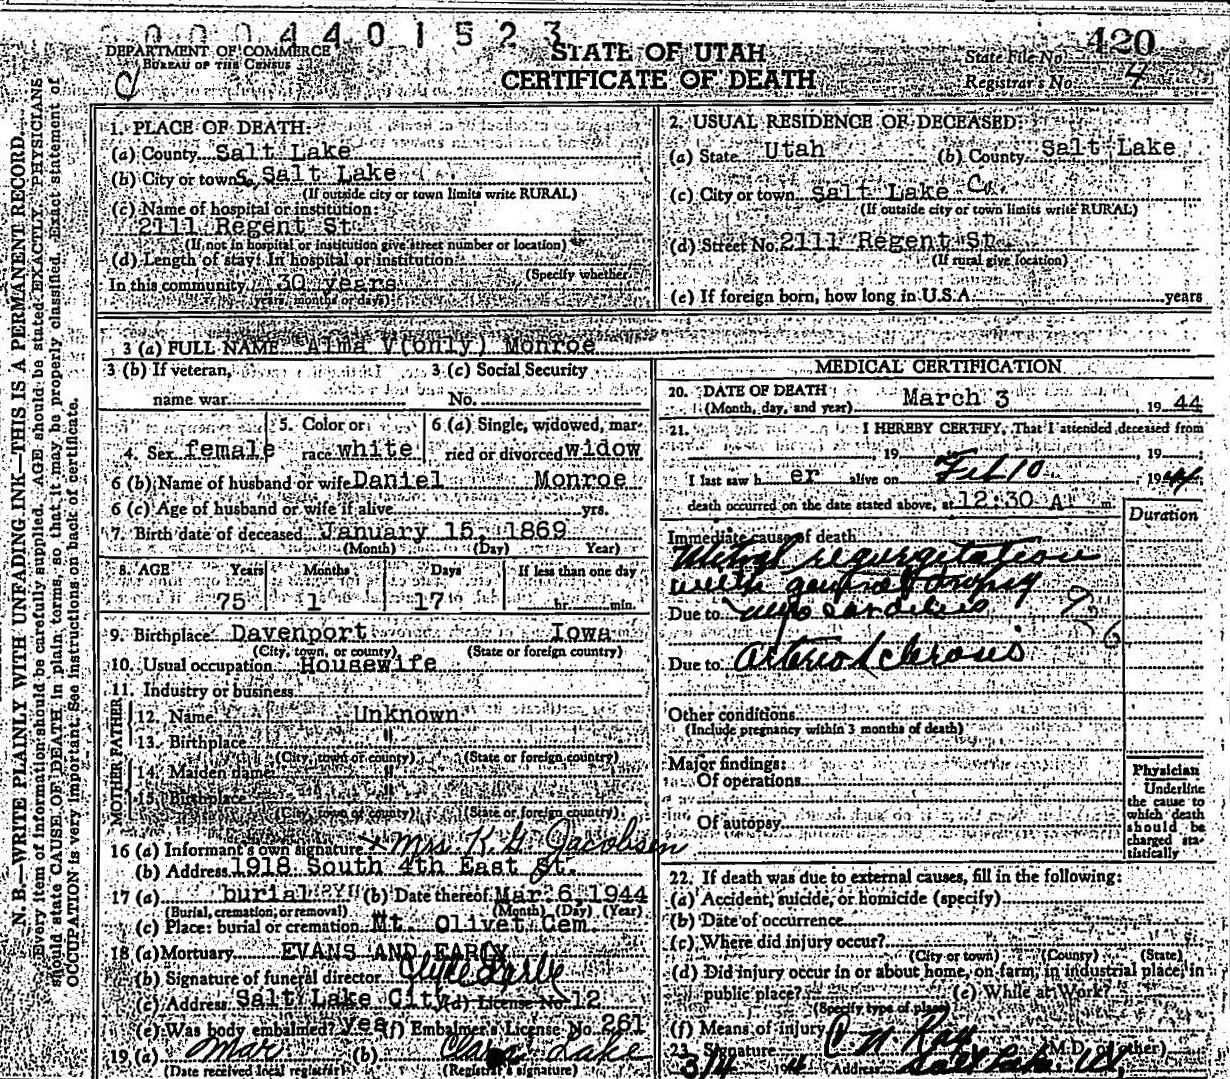 0 0 0 4 4 0 1 5 2 3
DEPARTMENT OF COMMERCE
BUREAU OF THE CENSUS
STATE OF UTAH
CERTIFICATE OF DEATH
State File No. 420
Registrar's No. 4
N. B.—WRITE PLAINLY WITH UNFADING INK—THIS IS A PERMANENT RECORD.
Every item of information should be carefully supplied. AGE should be stated EXACTLY. PHYSICIANS
should state CAUSE OF DEATH in plain terms, so that it may be properly classified. Exact statement of
OCCUPATION is very important. See instructions on back of certificate.
1. PLACE OF DEATH:
(a) County Salt Lake
(b) City or town S. Salt Lake
(If outside city or town limits write RURAL)
(c) Name of hospital or institution:
2111 Regent St.
(If not in hospital or institution give street number or location)
(d) Length of stay: In hospital or institution
(Specify whether
In this community 30 years
years, months or days)
2. USUAL RESIDENCE OF DECEASED:
(a) State Utah (b) County Salt Lake
(c) City or town Salt Lake Co.
(If outside city or town limits write RURAL)
(d) Street No. 2111 Regent St.
(If rural give location)
(e) If foreign born, how long in U.S.A. years
3 (a) FULL NAME Alma V(only) Monroe
3 (b) If veteran, 3 (c) Social Security
name war No.
4. Sex female 5. Color or race white 6 (a) Single, widowed, married or divorced widow
6 (b) Name of husband or wife Daniel Monroe
6 (c) Age of husband or wife if alive yrs.
7. Birth date of deceased January 15, 1869
(Month) (Day) Year)
8. AGE Years Months Days If less than one day
75 1 17 hr. min.
9. Birthplace Davenport Iowa
(City, town, or county) (State or foreign country)
10. Usual occupation Housewife
11. Industry or business
FATHER
12. Name Unknown
13. Birthplace "
(City, town or county) (State or foreign country)
MOTHER
14. Maiden name "
15. Birthplace "
(City, town or county) (State or foreign country)
16 (a) Informant's own signature Mrs K. G. Jacobsen
(b) Address 1918 South 4th East St.
17 (a) burial (b) Date thereof Mar. 6, 1944
(Burial, cremation, or removal) (Month) (Day) (Year)
(c) Place: burial or cremation Mt. Olivet Cem.
18 (a) Mortuary EVANS AND EARLY
(b) Signature of funeral director Clyde Early
(c) Address Salt Lake City (d) License No 12
(e) Was body embalmed? yes (f) Embalmer's License No. 261
19 (a) Mar (b) Clara Lake
(Date received local registrar) (Registrar's signature)
MEDICAL CERTIFICATION
20. DATE OF DEATH
(Month, day, and year) March 3 19 44
21. I HEREBY CERTIFY, That I attended deceased from
19 19
I last saw h er alive on Feb 10 1944
death occurred on the date stated above, at 12:30 A. m.
Duration
Immediate cause of death
Mitral regurgitation
with general dropsy
Due to myocarditis
Due to arteriosclerosis
Other conditions
(Include pregnancy within 3 months of death)
Major findings:
Of operations
Of autopsy
Physician
Underline
the cause to
which death
should be
charged sta-
tistically
22. If death was due to external causes, fill in the following:
(a) Accident, suicide, or homicide (specify)
(b) Date of occurrence
(c) Where did injury occur?
(City or town) (County) (State)
(d) Did injury occur in or about home, on farm, in industrial place, in
public place? (e) While at Work?
(Specify type of place)
(f) Means of injury
23. Signature C N Ray (M.D. or other)
3/4 Address Salt Lake, Ut,